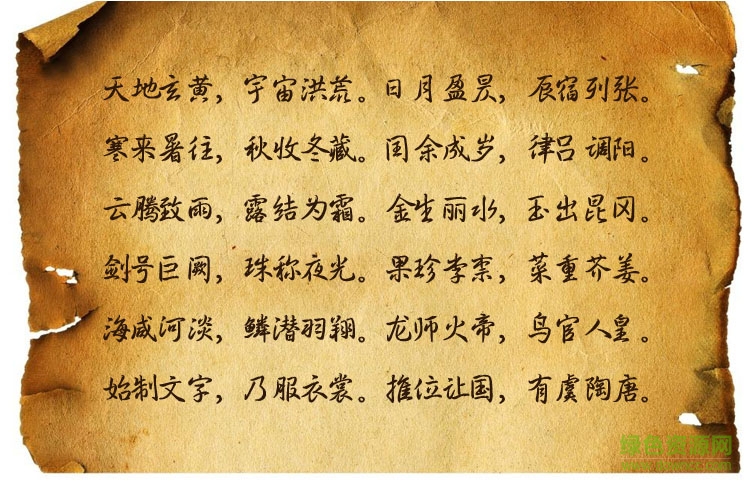 天地玄黄，宇宙洪荒。日月盈昃，辰宿列张。
寒来暑往，秋收冬藏。闰余成岁，律吕调阳。
云腾致雨，露结为霜。金生丽水，玉出昆冈。
剑号巨阙，珠称夜光。果珍李柰，菜重芥姜。
海咸河淡，鳞潜羽翔。龙师火帝，鸟官人皇。
始制文字，乃服衣裳。推位让国，有虞陶唐。
绿色资源网